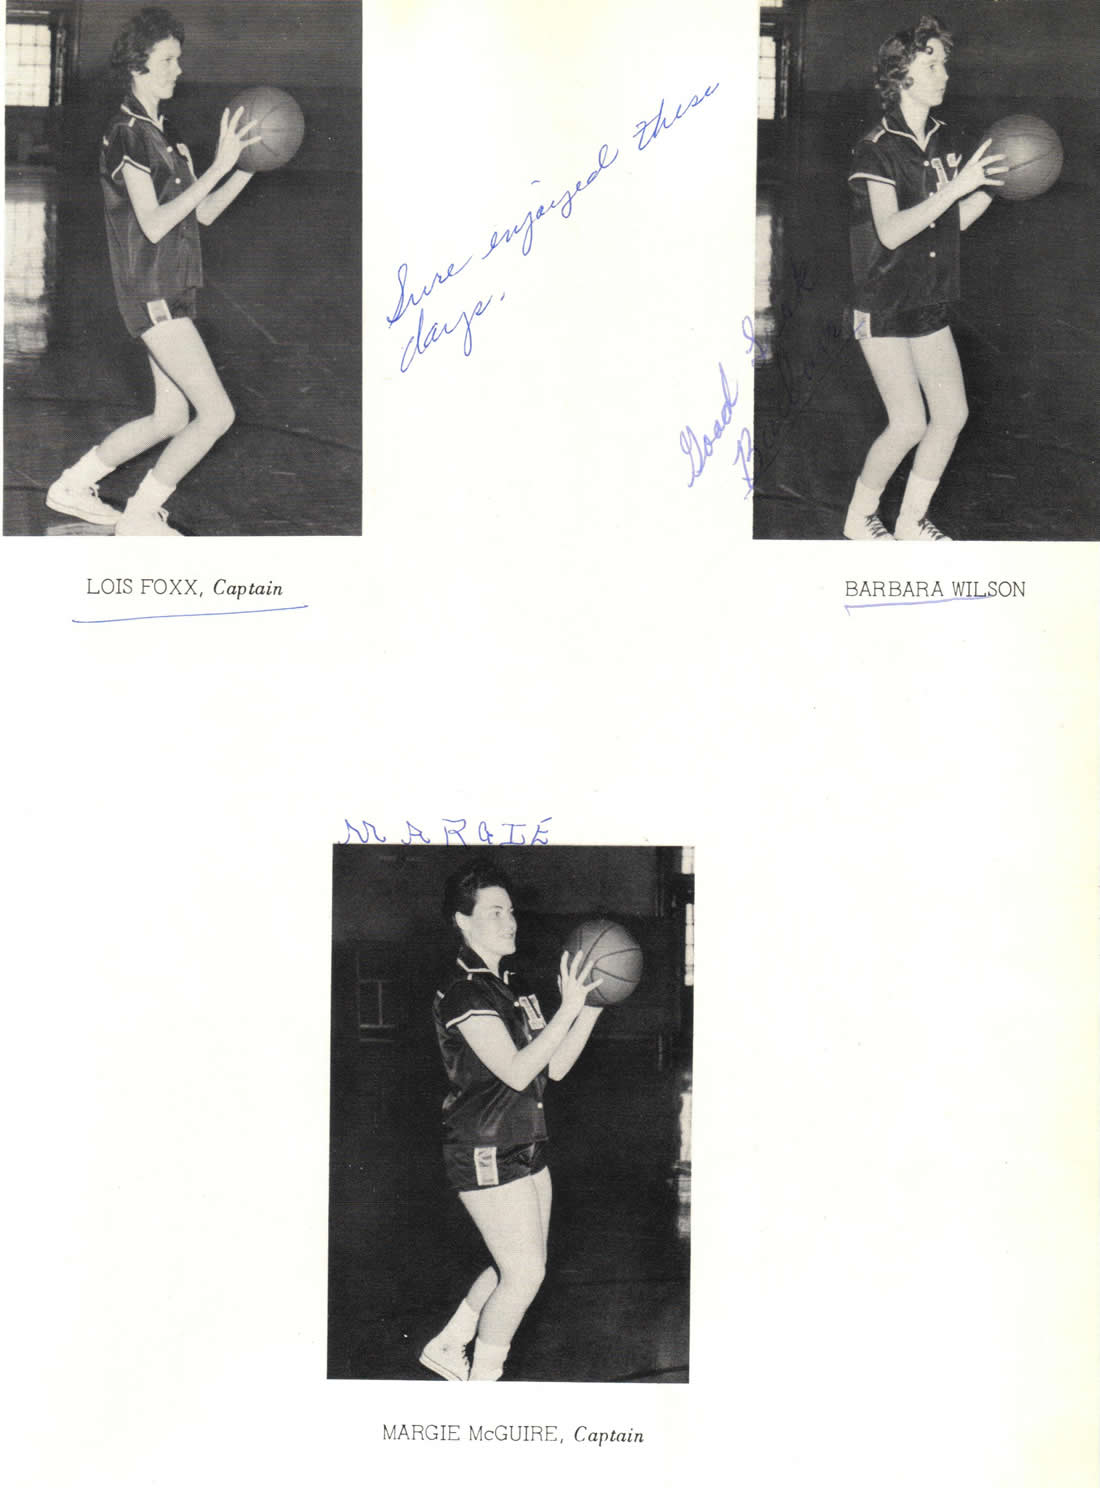 Sure enjoyed these
days.
Good Luck
Barbara
LOIS FOXX, Captain
BARBARA WILSON
MARGIE
MARGIE McGUIRE, Captain